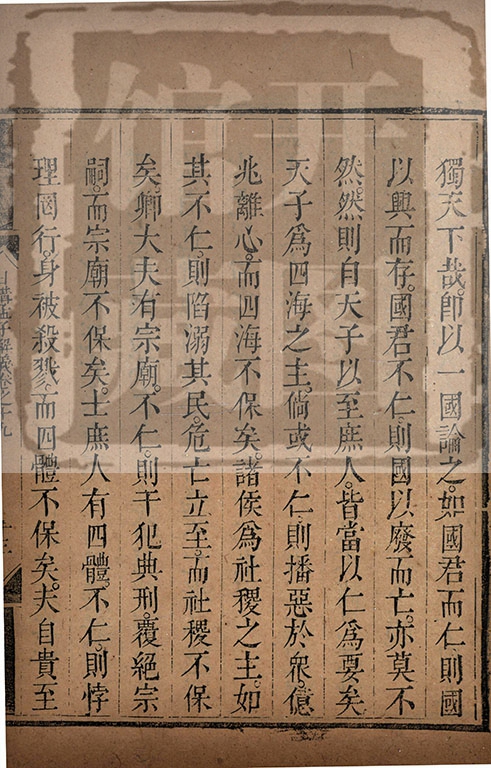 獨天下哉。即以一國論之。如國君而仁。則國
以興而存。國君不仁。則國以廢而亡。亦莫不
然。然則自天子以至庶人。皆當以仁爲要矣
天子爲四海之主。倘或不仁。則播惡於衆。億
兆離心。而四海不保矣。諸侯爲社稷之主。如
其不仁。則陷溺其民。危亡立至。而社稷不保
矣。卿大夫有宗廟。不仁。則干犯典刑。覆絕宗
嗣。而宗廟不保矣。士庶人有四體。不仁。則悖
理罔行。身被殺戮。而四體不保矣。夫自貴至
日講孟子解義卷之十九